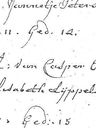 Jannetje Peters
11. Ged: 12
t: van Casper
Elisabeth Lippel
Ged: 15